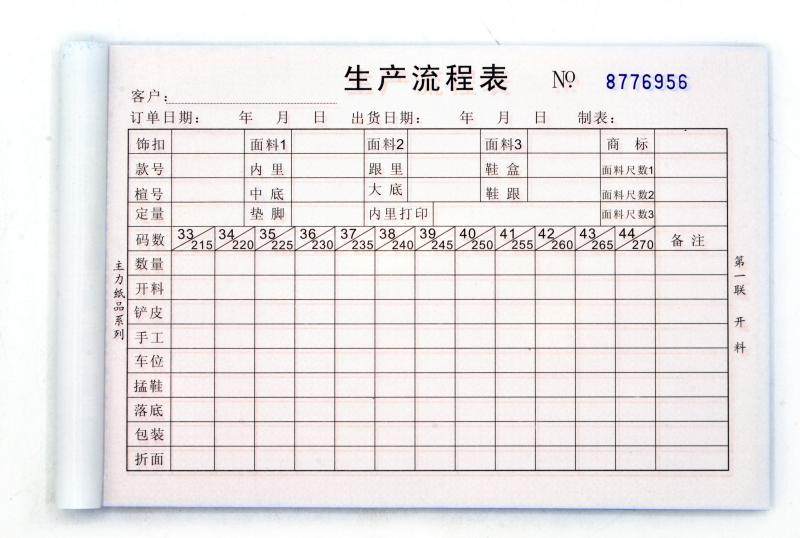 生产流程表 № 8776956
客户:
订单日期: 年 月 日 出货日期: 年 月 日 制表:
饰扣 面料1 面料2 面料3 商标
款号 内里 跟里 鞋盒 面料尺数1
楦号 中底 大底 鞋跟 面料尺数2
定量 垫脚 内里打印 面料尺数3
码数 33/215 34/220 35/225 36/230 37/235 38/240 39/245 40/250 41/255 42/260 43/265 44/270 备注
数量
开料
铲皮
手工
车位
掹鞋
落底
包装
折面
主力纸品系列
第一联 开料